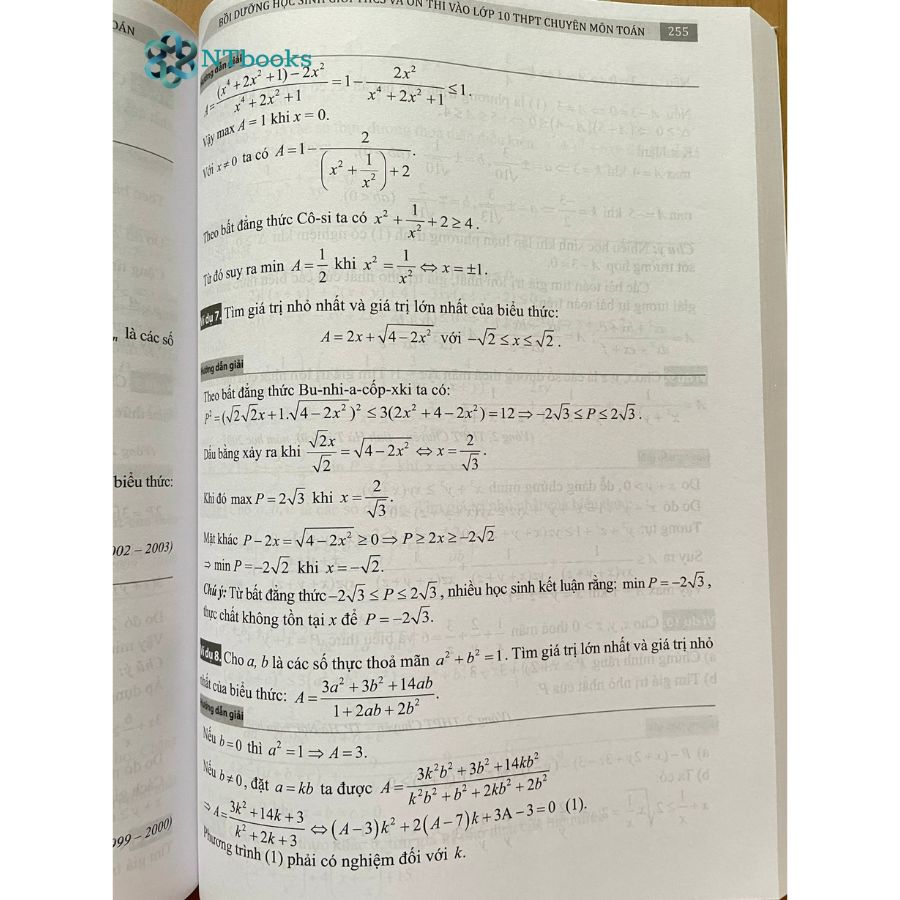 BỒI DƯỠNG HỌC SINH GIỎI THCS VÀ ÔN THI VÀO LỚP 10 THPT CHUYÊN MÔN TOÁN 255
NTbooks
Hướng dẫn giải
A = \frac{(x^4+2x^2+1)-2x^2}{x^4+2x^2+1} = 1 - \frac{2x^2}{x^4+2x^2+1} ≤ 1.
Vậy max A = 1 khi x = 0.
Với x ≠ 0 ta có A = 1 - \frac{2}{(x^2+\frac{1}{x^2})+2}.
Theo bất đẳng thức Cô-si ta có x^2 + \frac{1}{x^2} + 2 ≥ 4.
Từ đó suy ra min A = \frac{1}{2} khi x^2 = \frac{1}{x^2} ⇔ x = ±1.
Ví dụ 7. Tìm giá trị nhỏ nhất và giá trị lớn nhất của biểu thức:
A = 2x + \sqrt{4-2x^2} với -\sqrt{2} ≤ x ≤ \sqrt{2}.
Hướng dẫn giải
Theo bất đẳng thức Bu-nhi-a-cốp-xki ta có:
P^2 = (\sqrt{2}\sqrt{2}x + 1.\sqrt{4-2x^2})^2 ≤ 3(2x^2+4-2x^2) = 12 ⇒ -2\sqrt{3} ≤ P ≤ 2\sqrt{3}.
Dấu bằng xảy ra khi \frac{\sqrt{2}x}{\sqrt{2}} = \sqrt{4-2x^2} ⇔ x = \frac{2}{\sqrt{3}}.
Khi đó max P = 2\sqrt{3} khi x = \frac{2}{\sqrt{3}}.
Mặt khác P - 2x = \sqrt{4-2x^2} ≥ 0 ⇒ P ≥ 2x ≥ -2\sqrt{2}
⇒ min P = -2\sqrt{2} khi x = -\sqrt{2}.
Chú ý: Từ bất đẳng thức -2\sqrt{3} ≤ P ≤ 2\sqrt{3}, nhiều học sinh kết luận rằng: min P = -2\sqrt{3},
thực chất không tồn tại x để P = -2\sqrt{3}.
Ví dụ 8. Cho a, b là các số thực thoả mãn a^2 + b^2 = 1. Tìm giá trị lớn nhất và giá trị nhỏ
nhất của biểu thức: A = \frac{3a^2+3b^2+14ab}{1+2ab+2b^2}.
Hướng dẫn giải
Nếu b = 0 thì a^2 = 1 ⇒ A = 3.
Nếu b ≠ 0, đặt a = kb ta được A = \frac{3k^2b^2+3b^2+14kb^2}{k^2b^2+b^2+2kb^2+2b^2}
⇒ A = \frac{3k^2+14k+3}{k^2+2k+3} ⇔ (A-3)k^2 + 2(A-7)k + 3A - 3 = 0 (1).
Phương trình (1) phải có nghiệm đối với k.
OÁN
là các số
biểu thức:
002 – 2003)
999 – 2000)